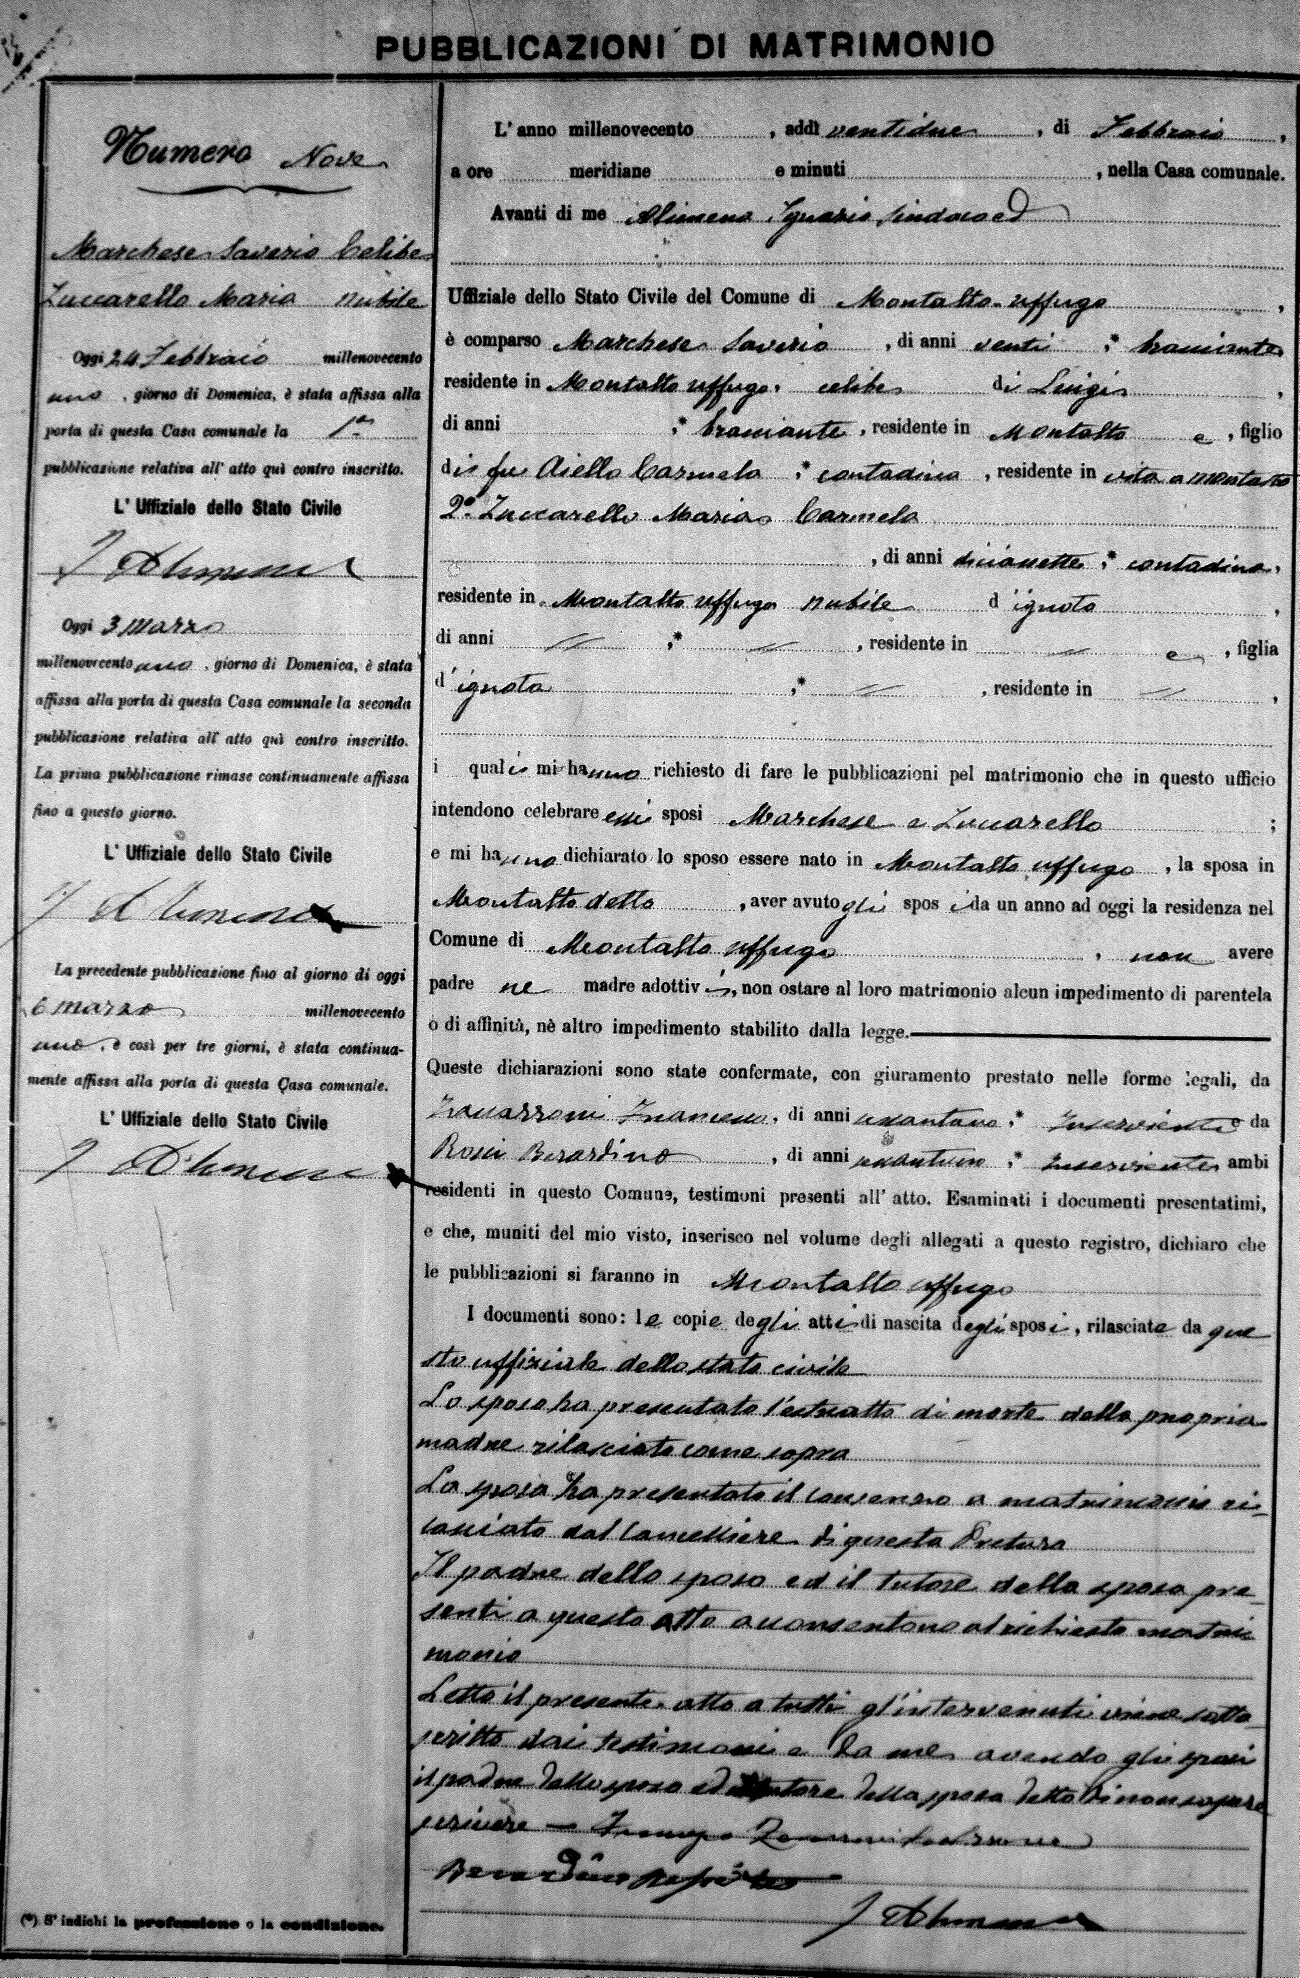 PUBBLICAZIONI DI MATRIMONIO
Numero Nove
Marchese Saverio Celibe
Zuccarello Maria nubile
Oggi 24 Febbraio millenovecento
uno, giorno di Domenica, è stata affissa alla
porta di questa Casa comunale la 1a
pubblicazione relativa all' atto quì contro inscritto.
L' Uffiziale dello Stato Civile
I Alimena
Oggi 3 Marzo
millenovecento uno, giorno di Domenica, è stata
affissa alla porta di questa Casa comunale la seconda
pubblicazione relativa all' atto quì contro inscritto.
La prima pubblicazione rimase continuamente affissa
fino a questo giorno.
L' Uffiziale dello Stato Civile
I Alimena
La precedente pubblicazione fino al giorno di oggi
6 marzo millenovecento
uno, e così per tre giorni, è stata continua-
mente affissa alla porta di questa Casa comunale.
L' Uffiziale dello Stato Civile
I Alimena
(*) S' indichi la professione o la condizione.
L' anno millenovecento , addì ventidue , di Febbraio ,
a ore meridiane e minuti , nella Casa comunale.
Avanti di me Alimena Ignazio Sindaco ed
Uffiziale dello Stato Civile del Comune di Montalto uffugo ,
è comparso Marchese Saverio , di anni venti ;* bracciante
residente in Montalto uffugo, celibe di Luigi ,
di anni ,* bracciante , residente in Montalto e , figlio
di fu Aiello Carmela ;* contadina , residente in vita a montalto
2° Zuccarello Maria Carmela
, di anni diciasette ;* contadina,
residente in Montalto uffugo nubile d' ignoto ,
di anni // ,* // , residente in // e , figlia
d' ignota ,* // , residente in // ,
i quali mi hanno richiesto di fare le pubblicazioni pel matrimonio che in questo ufficio
intendono celebrare essi sposi Marchese e Zuccarello ;
e mi hanno dichiarato lo sposo essere nato in Montalto uffugo , la sposa in
Montalto detto , aver avuto gli sposi da un anno ad oggi la residenza nel
Comune di Montalto uffugo , non avere
padre ne madre adottivi, non ostare al loro matrimonio alcun impedimento di parentela
o di affinità, nè altro impedimento stabilito dalla legge.
Queste dichiarazioni sono state confermate, con giuramento prestato nelle forme legali, da
Francesco, di anni ;* Inserviente e da
Berardino , di anni ;* Inserviente ambi
residenti in questo Comune, testimoni presenti all' atto. Esaminati i documenti presentatimi,
e che, muniti del mio visto, inserisco nel volume degli allegati a questo registro, dichiaro che
le pubblicazioni si faranno in Montalto uffugo
I documenti sono: le copie degli atti di nascita degli sposi, rilasciate da que
sto uffiziale dello stato civile
Lo sposo ha presentato l'estratto di morte della propria
madre rilasciato come sopra
La sposa ha presentato il consenso a matrimonio ri-
lasciato dal Cancelliere di questa Pretura
Il padre dello sposo ed il tutore della sposa pre-
senti a questo atto acconsentono al richiesto matri
monio
Letto il presente atto a tutti gl'intervenuti viene sotto
scritto dai testimoni e da me avendo gli sposi
il padre dello sposo ed tutore della sposa detto di non sapere
scrivere — testimone
I Alimena